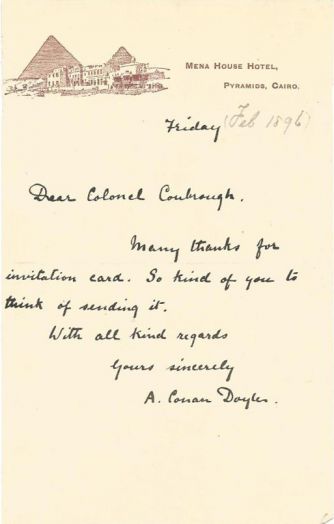 MENA HOUSE HOTEL,
PYRAMIDS, CAIRO.
Friday (Feb 1896)
Dear Colonel Coubrough.
Many thanks for
invitation card. So kind of you to
think of sending it.
With all kind regards
Yours sincerely
A. Conan Doyle.